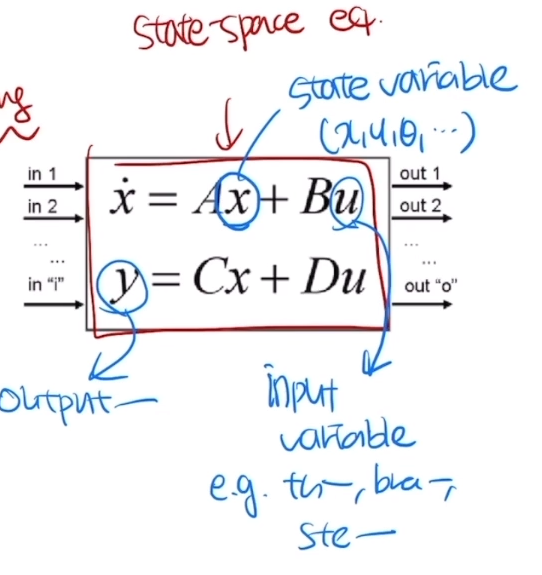 State-space eq.
ng
State variable
(x, y, θ, ...)
in 1
in 2
...
...
in "i"
ẋ = Ax + Bu
y = Cx + Du
out 1
out 2
...
...
out "o"
output
input
variable
e.g. th—, bra—,
ste—